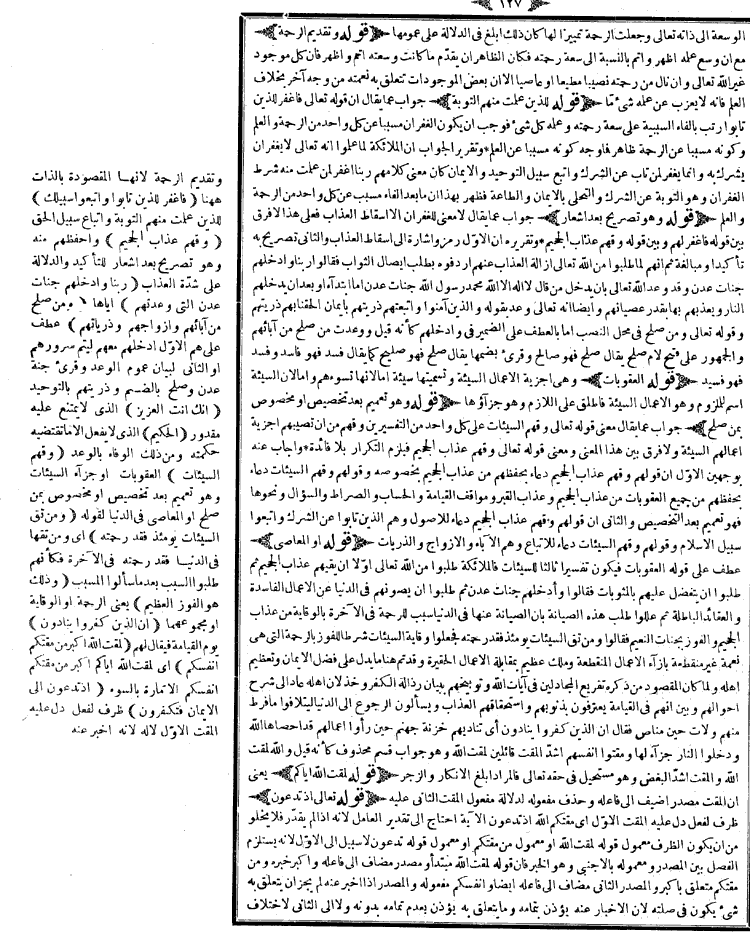 ﴿ ١٢٧ ﴾
الوسعة الى ذاته تعالى وجعلت الرحمة تمييزا لها كان ذلك ابلغ فى الدلالة على عمومها ﴿ قوله وتقديم الرحمة ﴾
مع ان وسع علمه اظهر واتم بالنسبة الى سعة رحمته فكان الظاهر ان يقدّم ما كانت وسعته اتم واظهر فان كل موجود
غير الله تعالى وان نال من رحمته نصيبا مطيعا او عاصيا الا ان بعض الموجودات تتعلق به نعمته من وجه آخر بخلاف
العلم فانه لا يعزب عن علمه شئ ما ﴿ قوله للذين علمت منهم التوبة ﴾ جواب عما يقال ان قوله تعالى فاغفر للذين
تابوا رتب بالفاء السببية على سعة رحمته وعلمه كل شئ فوجب ان يكون الغفران مسببا عن كل واحد من الرحمة والعلم
وكونه مسببا عن الرحمة ظاهر فاوجه كونه مسببا عن العلم * وتقرير الجواب ان الملائكة لما علموا انه تعالى لا يغفر ان
يشرك به وانما يغفر لمن تاب عن الشرك واتبع سبيل التوحيد والايمان كان معنى كلامهم ربنا اغفر لمن علمت منه شرط
الغفران وهو التوبة عن الشرك والتحلى بالايمان والطاعة فظهر بهذا ان ما بعد الفاء مسبب عن كل واحد من الرحمة
والعلم ﴿ قوله وهو تصريح بعد اشعار ﴾ جواب عما يقال لا معنى للغفران الا اسقاط العذاب فعلى هذا لا فرق
بين قوله فاغفر لهم وبين قوله وقهم عذاب الجحيم * وتقريره ان الاوّل رمز واشارة الى اسقاط العذاب والثانى تصريح به
تأكيدا ومبالغة ثم انهم لما طلبوا من الله تعالى ازالة العذاب عنهم اردفوه بطلب ايصال الثواب فقالوا ربنا وادخلهم
جنات عدن وقد وعد الله تعالى بان يدخل من قال لا اله الا الله محمد رسول الله جنات عدن اما ابتداء او بعد ان يدخلهم
النار ويعذبهم بها بقدر عصيانهم وايضا انه تعالى وعد بقوله والذين آمنوا واتبعتهم ذريتهم بأيمان الحقنا بهم ذريتهم
وقوله تعالى ومن صلح فى محل النصب اما بالعطف على الضمير فى وادخلهم كأنه قيل ووعدت من صلح من آبائهم
والجمهور على فتح لام صلح يقال صلح فهو صالح وقرئ بضمها يقال صلح فهو صليح كما يقال فسد فهو فاسد وفسد
فهو فسيد ﴿ قوله العقوبات ﴾ وهى اجزية الاعمال السيئة وتسميتها سيئة اما لانها تسوءهم واما لان السيئة
اسم للملزوم وهو الاعمال السيئة فاطلق على اللازم وهو جزآؤها ﴿ قوله وهو تعميم بعد تخصيص او مخصوص
بمن صلح ﴾ جواب عما يقال معنى قوله تعالى وقهم السيئات على كل واحد من التفسيرين وقهم من ان تصيبهم اجزية
اعمالهم السيئة ولا فرق بين هذا المعنى ومعنى قوله تعالى وقهم عذاب الجحيم فيلزم التكرار بلا فائدة * واجاب عنه
بوجهين الاوّل ان قولهم وقهم عذاب الجحيم دعاء بحفظهم من عذاب الجحيم بخصوصه وقولهم وقهم السيئات دعاء
بحفظهم من جميع العقوبات من عذاب الجحيم وعذاب القبر ومواقف القيامة والحساب والصراط والسؤال ونحوها
فهو تعميم بعد التخصيص والثانى ان قولهم وقهم عذاب الجحيم دعاء للاصول وهم الذين تابوا عن الشرك واتبعوا
سبيل الاسلام وقولهم وقهم السيئات دعاء للاتباع وهم الآباء والازواج والذريات ﴿ قوله او المعاصى ﴾
عطف على قوله العقوبات فيكون تفسيرا ثالثا للسيئات فالملائكة طلبوا من الله تعالى اولا ان يقيهم عذاب الجحيم ثم
طلبوا ان يتفضل عليهم بالمثوبات فقالوا وأدخلهم جنات عدن ثم طلبوا ان يصونهم فى الدنيا عن الاعمال الفاسدة
والعقائد الباطلة ثم عللوا طلب هذه الصيانة بان الصيانة عنها فى الدنيا سبب للرحمة فى الآخرة بالوقاية من عذاب
الجحيم والفوز بجنات النعيم فقالوا ومن تق السيئات يومئذ فقد رحمته فجعلوا وقاية السيئات شرطا للفوز بالرحمة التى هى
نعمة غير منقطعة بازآء الاعمال المنقطعة وملك عظيم بمقابلة الاعمال الحقيرة وقد تم هنا ما يدل على فضل الايمان وتعظيم
اهله ولما كان المقصود من ذكره تقريع المجادلين فى آيات الله وتوبيخهم ببيان رذالة الكفر وخذلان اهله عاد الى شرح
احوالهم وبين انهم فى القيامة يعترفون بذنوبهم واستحقاقهم العذاب ويسألون الرجوع الى الدنيا ليتلافوا ما فرط
منهم ولات حين مناص فقال ان الذين كفروا ينادون أى تناديهم خزنة جهنم حين رأوا اعمالهم قد احصاها الله
ودخلوا النار جزآء لها ومقتوا انفسهم اشدّ المقت قائلين لمقت الله وهو جواب قسم محذوف كأنه قيل والله لمقت
الله والمقت اشدّ البغض وهو مستحيل فى حقه تعالى فالمراد ابلغ الانكار والزجر ﴿ قوله لمقت الله اياكم ﴾ يعنى
ان المقت مصدر اضيف الى فاعله وحذف مفعوله لدلالة مفعول المقت الثانى عليه ﴿ قوله تعالى اذ تدعون ﴾
ظرف لفعل دل عليه المقت الاوّل اى مقتكم الله اذ تدعون الآية احتاج الى تقدير العامل لانه اذا لم يقدّر فلا يخلو
من ان يكون الظرف معمول قوله لمقت الله او معمول من مقتكم او معمول قوله تدعون لا سبيل الى الاوّل لانه يستلزم
الفصل بين المصدر ومعموله بالاجنبى وهو الخبر فان قوله لمقت الله مبتدأ ومصدر مضاف الى فاعله واكبر خبره ومن
مقتكم متعلق باكبر والمصدر الثانى مضاف الى فاعله ايضا وانفسكم مفعوله والمصدر اذا اخبر عنه لم يجز ان يتعلق به
شئ يكون فى صلته لان الاخبار عنه يؤذن بتمامه وما يتعلق به يؤذن بعدم تمامه بدونه ولا الى الثانى لاختلاف
وتقديم الرحمة لانها المقصودة بالذات
ههنا ( فاغفر للذين تابوا واتبعوا سبيلك )
للذين علمت منهم التوبة واتباع سبيل الحق
( وقهم عذاب الجحيم ) واحفظهم منه
وهو تصريح بعد اشعار للتأكيد والدلالة
على شدّة العذاب ( ربنا وادخلهم جنات
عدن التى وعدتهم ) اياها ( ومن صلح
من آبائهم وازواجهم وذرياتهم ) عطف
على هم الاوّل ادخلهم معهم ليتم سرورهم
او الثانى لبيان عموم الوعد وقرئ جنة
عدن وصلح بالضم وذريتهم بالتوحيد
( انك انت العزيز ) الذى لا يمتنع عليه
مقدور ( الحكيم ) الذى لا يفعل الا ما تقتضيه
حكمته ومن ذلك الوفاء بالوعد ( وقهم
السيئات ) العقوبات او جزآء السيئات
وهو تعميم بعد تخصيص او مخصوص بمن
صلح او المعاصى فى الدنيا لقوله ( ومن تق
السيئات يومئذ فقد رحمته ) اى ومن تقها
فى الدنيا فقد رحمته فى الآخرة فكأنهم
طلبوا السبب بعد ما سألوا المسبب ( وذلك
هو الفوز العظيم ) يعنى الرحمة او الوقاية
او مجموعهما ( ان الذين كفروا ينادون )
يوم القيامة فيقال لهم ( لمقت الله اكبر من مقتكم
انفسكم ) اى لمقت الله اياكم اكبر من مقتكم
انفسكم الامّارة بالسوء ( اذ تدعون الى
الايمان فتكفرون ) ظرف لفعل دل عليه
المقت الاوّل لا له لانه اخبر عنه